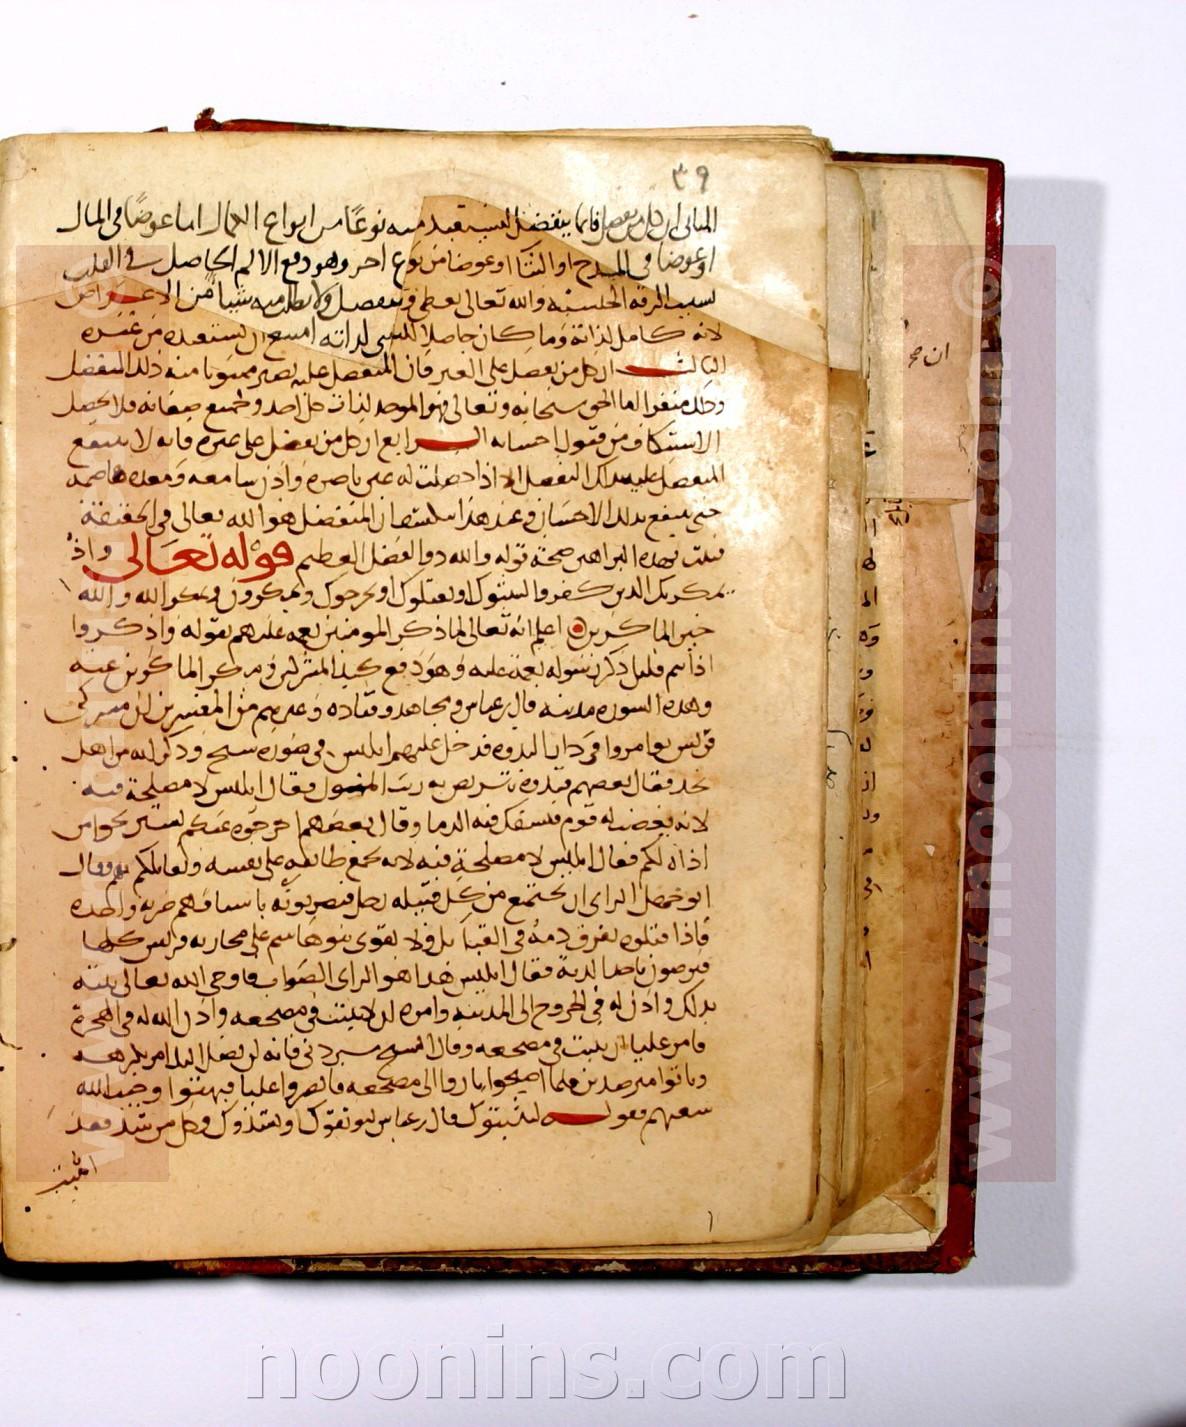 ٣٩
الثاني ان كل من تفضل فانما يتفضل ليستفيد منه نوعًا من انواع الكمال اما عوضًا في المال
او عوضا في المدح او الثنا او عوضا من نوع اخر وهو دفع الالم الحاصل في القلب
بسبب الرقة الجنسية والله تعالى يعطي ويتفضل ولا يطلب به شيا من الاعواض
لانه كامل لذاته وما كان حاصلا للشي لذاته امتنع ان يستفيده من غيره
الثالث ان كل من تفضل على الغير فان المتفضل عليه يصير ممنونا منه ذلك المتفضل
وذلك منفر اما الحق سبحانه وتعالى فهو الموجد لذات كل احد ولجميع صفاته فلا يحصل
الاستنكاف من قبول احسانه الرابع ان كل من يفضل على غيره فانه لا ينتفع
المتفضل عليه بذلك التفضل الا اذا حصلت له عين باصرة واذن سامعة ومعدة هاضمة
حتى ينتفع بذلك الاحسان وعند هذا ينكشف ان المتفضل هو الله تعالى في الحقيقة
فثبت بهذه البراهين صحة قوله والله ذو الفضل العظيم قوله تعالى واذ
يمكر بك الذين كفروا ليثبتوك او يقتلوك او يخرجوك ويمكرون ويمكر الله والله
خير الماكرين اعلم انه تعالى لما ذكر المومنين نعمه عليهم بقوله واذكروا
اذ انتم قليل ذكر رسوله نعمه عليه وهو دفع كيد المشركين ومكر الماكرين عنه
وهذه السورة مدنية قال ابن عباس ومجاهد وقتادة وغيرهم من المفسرين ان مشركي
قريش توامروا في دار الندوة فدخل عليهم ابليس في صورة شيخ وذكر انه من اهل
نجد فقال بعضهم قيدوه نتربص به ريب المنون فقال ابليس لا مصلحة فيه
لانه يغضب له قوم فتسفك فيه الدما وقال بعضهم اخرجوه عنكم تستريحوا من
اذاه لكم فقال ابليس لا مصلحة فيه لانه يجمع طائفة على نفسه ويقاتلكم بهم وقال
ابو جهل الراي ان يجتمع من كل قبيلة رجل فيضربونه باسيافهم ضربة واحدة
فاذا قتلوه تفرق دمه في القبائل ولا يقوى بنو هاشم على محاربة قريش كلها
فيرضون باخذ الدية فقال ابليس هذا هو الراي الصواب فاوحى الله تعالى لنبيه
بذلك واذن له في الخروج الى المدينة وامره ان لا يبيت في مضجعه واذن الله له في الهجرة
فامر عليا ان يبيت في مضجعه وقال اتشح ببردتي فانه لن يخلص اليك امر تكرهه
وباتوا مترصدين فلما اصبحوا ثاروا الى مضجعه فابصروا عليا فبهتوا وخيب الله
سعيهم وقوله ليثبتوك قال ابن عباس ليوثقوك او يشدوك وكل من شد فقد
اثبت
ان صح
noonins.com
www.noonins.com ©
www.noonins.com ©